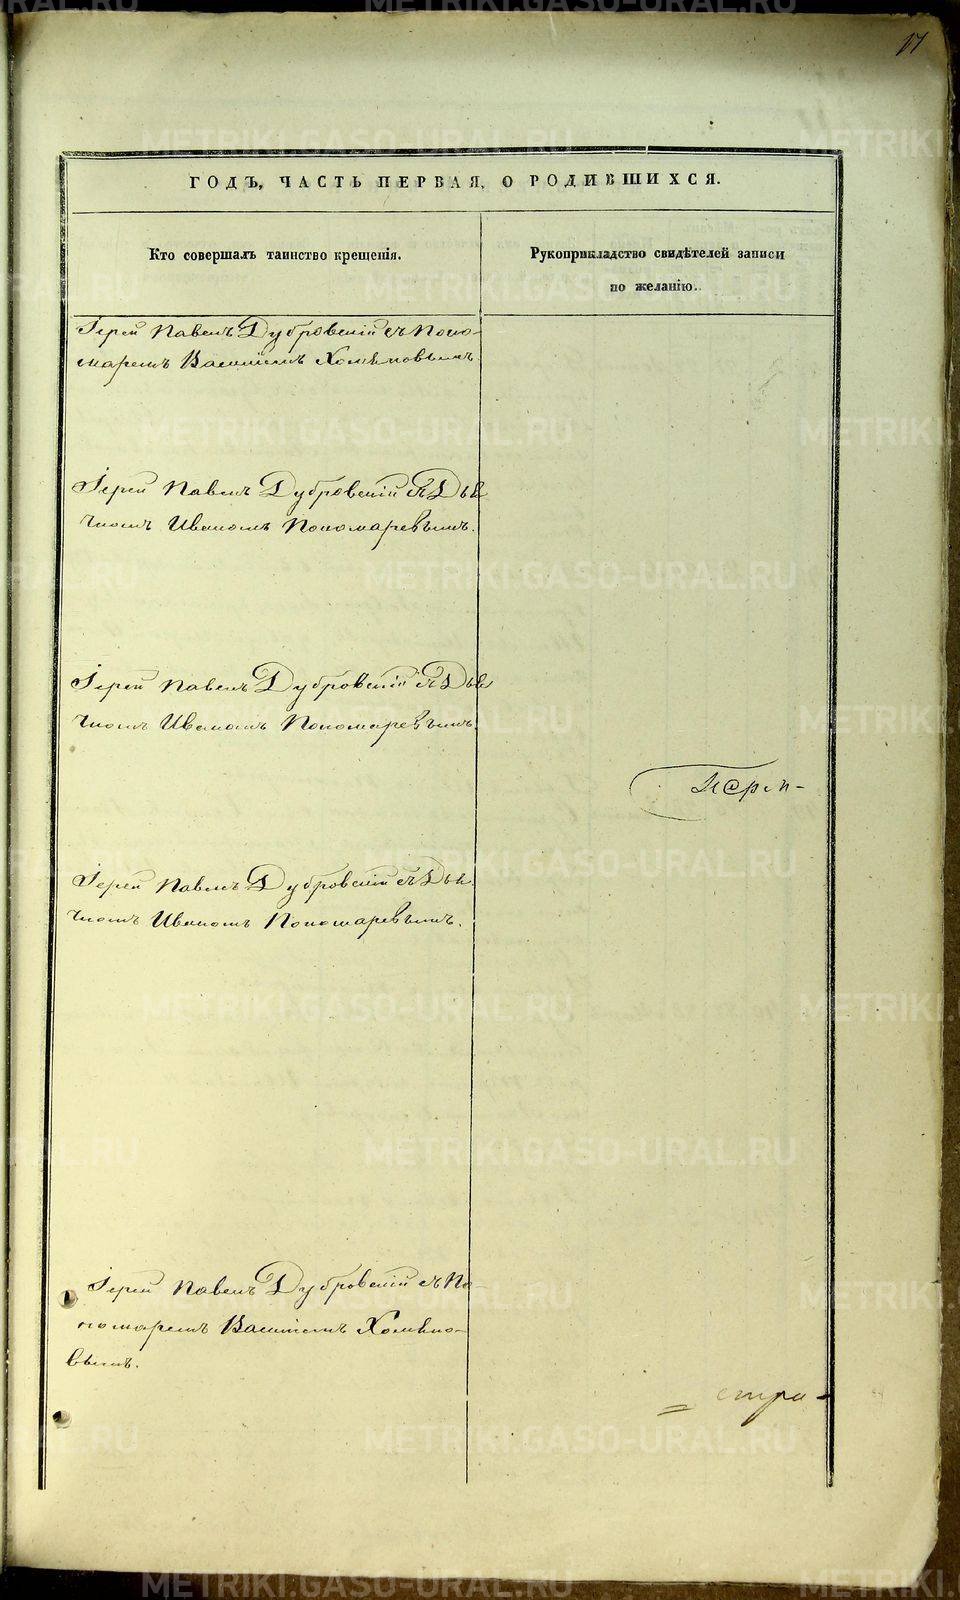 17
ГОДЪ, ЧАСТЬ ПЕРВАЯ, О РОДИВШИХСЯ.
Кто совершалъ таинство крещенія.
Рукоприкладство свидѣтелей записи
по желанію.
Іерей Павелъ Дубровскій съ Поно-
маремъ Василіемъ Хомяковымъ.
Іерей Павелъ Дубровскій съ Дья
чкомъ Иваномъ Пономаревымъ.
Іерей Павелъ Дубровскій съ Дья
чкомъ Иваномъ Пономаревымъ.
Іерей Павелъ Дубровскій съ Дья
чкомъ Иваномъ Пономаревымъ.
Іерей Павелъ Дубровскій съ По-
номаремъ Василіемъ Хомяко-
вымъ.
METRIKI.GASO-URAL.RU